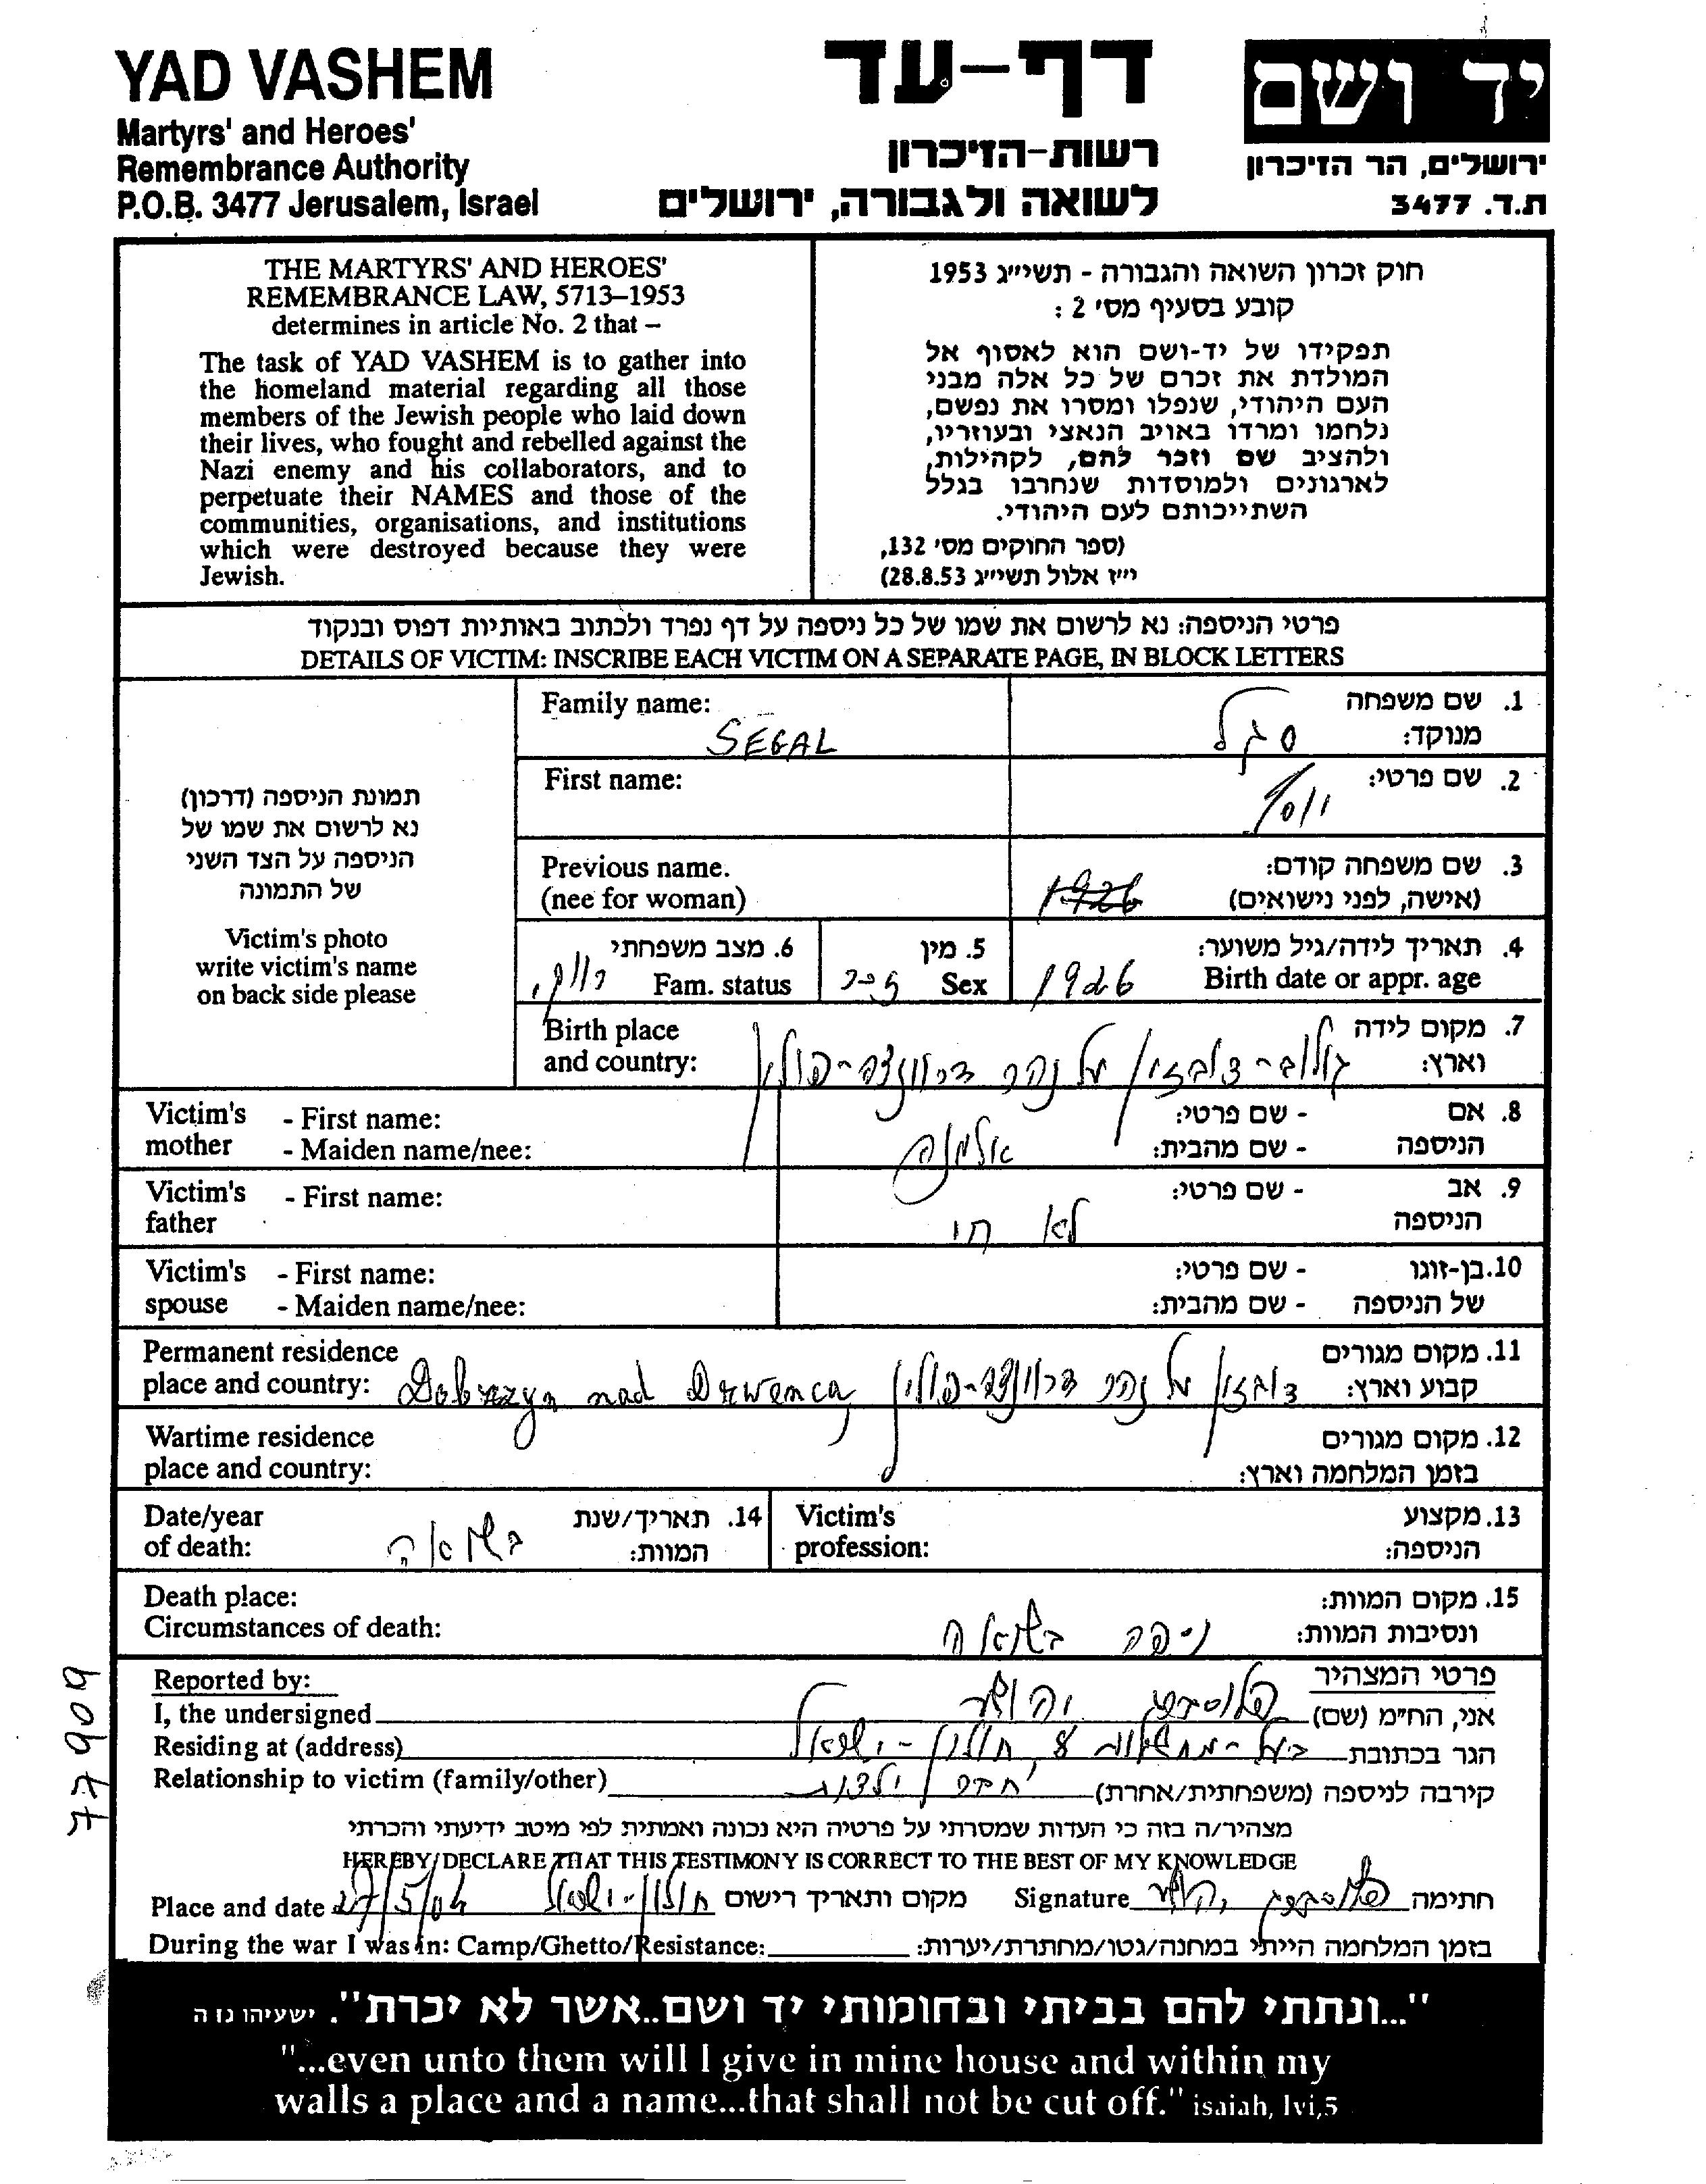 YAD VASHEM
Martyrs' and Heroes'
Remembrance Authority
P.O.B. 3477 Jerusalem, Israel
דף-עד
רשות-הזיכרון
לשואה ולגבורה, ירושלים
יד ושם
ירושלים, הר הזיכרון
ת.ד. 3477
THE MARTYRS' AND HEROES'
REMEMBRANCE LAW, 5713–1953
determines in article No. 2 that –
The task of YAD VASHEM is to gather into
the homeland material regarding all those
members of the Jewish people who laid down
their lives, who fought and rebelled against the
Nazi enemy and his collaborators, and to
perpetuate their NAMES and those of the
communities, organisations, and institutions
which were destroyed because they were
Jewish.
חוק זכרון השואה והגבורה - תשי״ג 1953
קובע בסעיף מס׳ 2 :
תפקידו של יד-ושם הוא לאסוף אל
המולדת את זכרם של כל אלה מבני
העם היהודי, שנפלו ומסרו את נפשם,
נלחמו ומרדו באויב הנאצי ובעוזריו,
ולהציב שם וזכר להם, לקהילות,
לארגונים ולמוסדות שנחרבו בגלל
השתייכותם לעם היהודי.
(ספר החוקים מס׳ 132,
י״ז אלול תשי״ג 28.8.53)
פרטי הניספה: נא לרשום את שמו של כל ניספה על דף נפרד ולכתוב באותיות דפוס ובנקוד
DETAILS OF VICTIM: INSCRIBE EACH VICTIM ON A SEPARATE PAGE, IN BLOCK LETTERS
תמונת הניספה (דרכון)
נא לרשום את שמו של
הניספה על הצד השני
של התמונה
Victim's photo
write victim's name
on back side please
Family name: SEGAL
1. שם משפחה
מנוקד: סגל
First name:
2. שם פרטי: יוסף
Previous name.
(nee for woman)
3. שם משפחה קודם:
(אישה, לפני נישואים) 1926
6. מצב משפחתי
Fam. status רווק
5. מין
Sex זכר
4. תאריך לידה/גיל משוער:
Birth date or appr. age 1926
Birth place
and country:
7. מקום לידה
וארץ: גולוב-דוברזין על נהר דרוונצה-פולין
Victim's mother
- First name:
- Maiden name/nee:
8. אם הניספה
- שם פרטי:
- שם מהבית: אלמנה
Victim's father
- First name:
9. אב הניספה
- שם פרטי:
לא חי
Victim's spouse
- First name:
- Maiden name/nee:
10. בן-זוגו של הניספה
- שם פרטי:
- שם מהבית:
Permanent residence
place and country: Dobrzyn nad Drwenca
11. מקום מגורים
קבוע וארץ: דוברזין על נהר דרוונצה-פולין
Wartime residence
place and country:
12. מקום מגורים
בזמן המלחמה וארץ:
Date/year
of death:
14. תאריך/שנת
המוות: בשואה
Victim's
profession:
13. מקצוע
הניספה:
Death place:
Circumstances of death:
15. מקום המוות:
ונסיבות המוות: ניספה בשואה
Reported by:
פרטי המצהיר
I, the undersigned
אני, הח״מ (שם)
Residing at (address)
הגר בכתובת 8 חולון-ישראל
Relationship to victim (family/other)
קירבה לניספה (משפחתית/אחרת) חבר ילדות
מצהיר/ה בזה כי העדות שמסרתי על פרטיה היא נכונה ואמתית לפי מיטב ידיעתי והכרתי
HEREBY DECLARE THAT THIS TESTIMONY IS CORRECT TO THE BEST OF MY KNOWLEDGE
Place and date 27/5/04 חולון-ישראל מקום ותאריך רישום
Signature חתימה
During the war I was in: Camp/Ghetto/Resistance:
בזמן המלחמה הייתי במחנה/גטו/מחתרת/יערות:
"...ונתתי להם בביתי ובחומותי יד ושם..אשר לא יכרת". ישעיהו נו ה
"...even unto them will I give in mine house and within my
walls a place and a name...that shall not be cut off." isaiah, lvi,5
77909